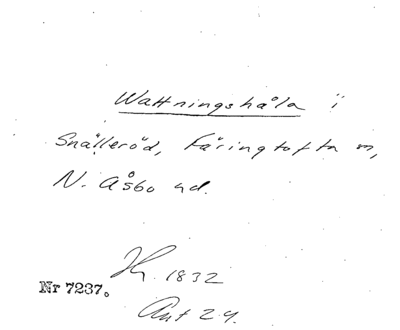 Wattningshåla i
Snälleröd, Färingtofta sn,
N. Åsbo hd.
Kr. 1832
Nr 7237.
Ant 24.